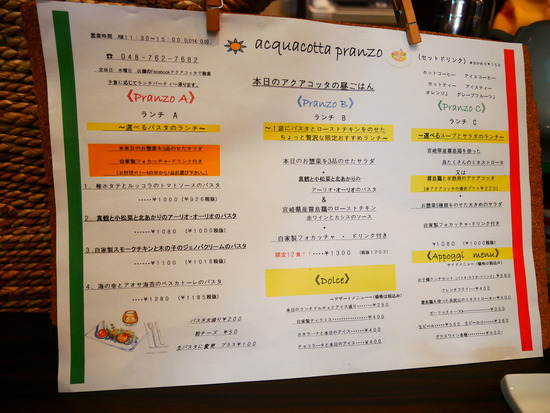 営業時間 AM11:30~15:00 (LO14:00)
☎ 048-762-7682
定休日 木曜日 店舗のFacebookアクアコッタで検索
予算に応じてランチパーティー承ります。
acquacotta pranzo
本日のアクアコッタの昼ごはん
《セットドリンク》
ホットコーヒー アイスコーヒー
ホットティー アイスティー
オレンジJ グレープフルーツJ
《Pranzo A》
ランチ A
~選べるパスタのランチ~
本日のお惣菜を3品のせたサラダ
自家製フォカッチャ・ドリンク付き
(お料理の1~4の中から1品お選び下さい)
1. 種ホタテとルッコラのトマトソースのパスタ
¥1000 (¥926税抜)
2. 真鱈と小松菜と北あかりのアーリオ・オーリオのパスタ
¥1080 (¥1000税抜)
3. 自家製スモークチキンと木の子のジェノバクリームのパスタ
¥1100 (¥1018税抜)
4. 海の幸とアオサ海苔のペスカトーレのパスタ
¥1280 (¥1185税抜)
パスタ大盛り ¥200
粉チーズ ¥50
生パスタに変更 プラス¥100
《Pranzo B》
ランチ B
~1皿にパスタとローストチキンをのせた
ちょっと贅沢な限定おすすめランチ~
本日のお惣菜を3品のせたサラダ
・
真鱈と小松菜と北あかりの
アーリオ・オーリオのパスタ
&
宮崎県産霧島鶏のローストチキン
赤ワインとカシスのソース
・
自家製フォカッチャ ・ ドリンク付き
限定12食! ¥1300 (税抜1203)
《Dolce》
~デザートメニュー~(価格は税込み)
本日のランチドルチェとアイス盛り ¥280
自家製ティラミス ¥400
カタラーナと本日のアイス ¥400
チョコラータと本日のアイス ¥400
《Pranzo C》
ランチ C
~選べるスープとサラダのランチ~
宮崎県産霧島鶏を使った
具だくさんのミネストローネ
又は
お惣菜5種類をのせた大きめのサラダ
自家製フォカッチャ・ドリンク付き
¥1080 (¥1000税抜)
《Appoggi menu》
サイドメニュー(価格は税込み)
¥580
フレンチフライ ¥430
ガーリックトースト
生ビール ¥580
グラスワイン各種